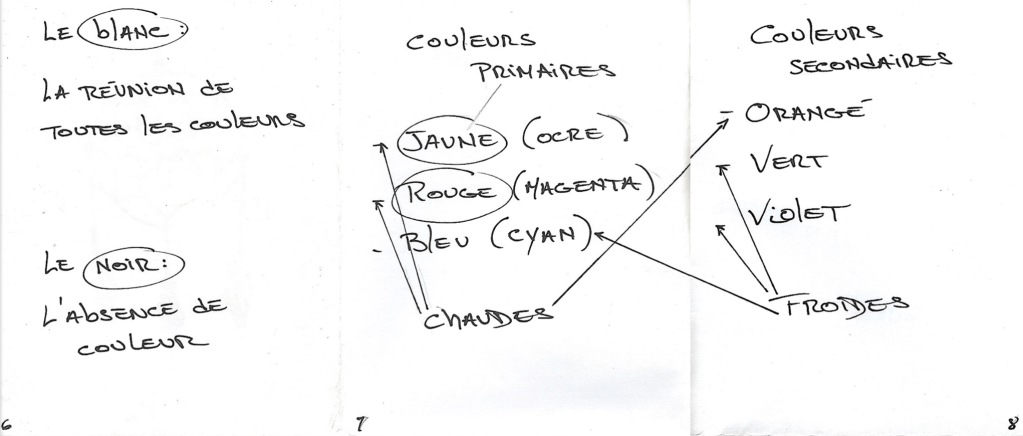 LE blANC:
LA RÉUNION dE
TOUTES lES COUlEURS
LE NOIR:
L'AbSENCE dE
COULEUR
6
COUlEURS
PRIMAIRES
JAUNE (OCRE)
ROUGE (MAGENTA)
- BlEU (CYAN)
CHAUDES
7
COUlEURS
SECONdAIRES
- ORANGÉ
VERT
ViOlET
FROIDES
8